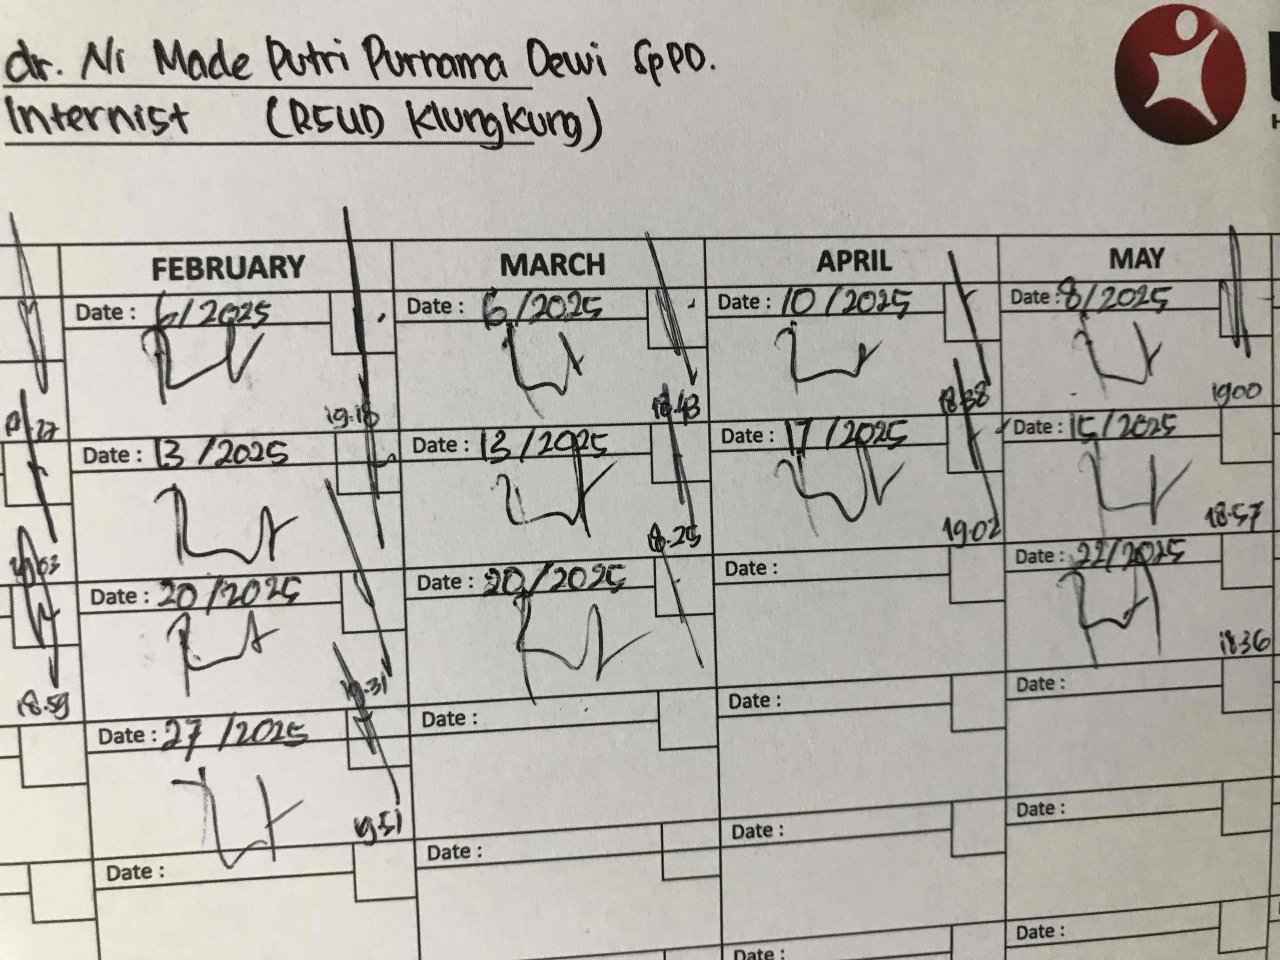 dr. Ni Made Putri Purnama Dewi SpPD.
Internist (RSUD Klungkung)
FEBRUARY MARCH APRIL MAY
Date : 6/2025 Date : 6/2025 Date : 10/2025 Date : 8/2025
19.18 18.43 18.38 19.00
Date : 13/2025 Date : 13/2025 Date : 17/2025 Date : 15/2025
18.25 19.02 18.57
Date : 20/2025 Date : 20/2025 Date : Date : 22/2025
18.59 19.31 18.36
Date : 27/2025 Date : Date : Date :
19.51
Date : Date : Date : Date :
Date : Date :